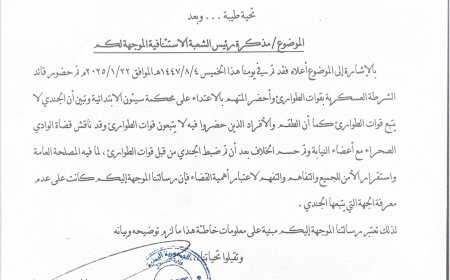 تحية طيبة . . . وبعد
الموضوع/ مذكرة رئيس الشعبة الاستئنافية الموجهة لكم
بالإشارة إلى الموضوع أعلاه فقد تم في يومنا هذا الخميس ١٤٤٧/٨/٤هـ الموافق ٢٠٢٥/١/٢٢م حضور قائد
الشرطة العسكرية بقوات الطوارئ وأحضر المتهم بالاعتداء على محكمة سيئون الابتدائية وتبين أن الجندي لا
يتبع قوات الطوارئ كما أن الطقم والأفراد الذين حضروا فيه لا يتبعون قوات الطوارئ وقد ناقش قضاة الوادي
الصحراء مع أعضاء النيابة وتم حسم الخلاف بعد أن تم ضبط الجندي من قبل قوات الطوارئ ، لما فيه المصلحة العامة
واستقرار الأمن للجميع والتفاهم والتفهم لاعتبار أهمية القضاء فإن رسالتنا الموجهة إليكم كانت على عدم
معرفة الجهة التي يتبعها الجندي .
لذلك تعتبر رسالتنا الموجهة إليكم مبنية على معلومات خاطئة هذا ما لزم توضيحه وبيانه
وتقبلوا تحياتنا...